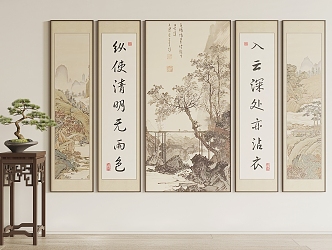 入云深处亦沾衣
纵使清明无雨色